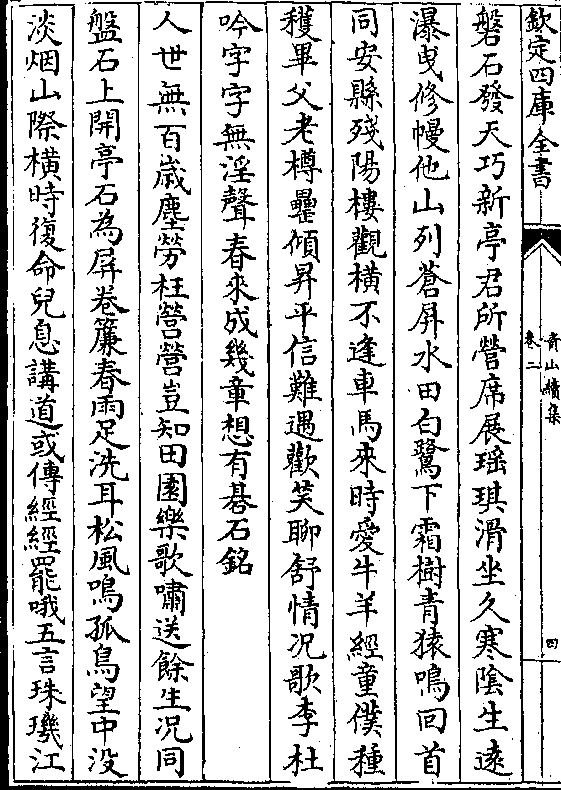 欽定四庫全書
青山續集
卷二
四
磐石發天巧新亭君所營席展瑶琪滑坐久寒陰生逺
瀑曳修幔他山列蒼屏水田白鷺下霜樹青猿鳴回首
同安縣殘陽樓觀橫不逢車馬來時愛牛羊經童僕種
穫畢父老樽罍傾昇平信難遇歡笑聊舒情况歌李杜
吟字字無淫聲春來成幾章想有磐石銘
人世無百嵗塵勞枉營營豈知田園樂歌嘯送餘生况同
盤石上開亭石為屏卷簾春雨足洗耳松風鳴孤鳥望中没
淡烟山際橫時復命兒息講道或傳經經罷哦五言珠璣江